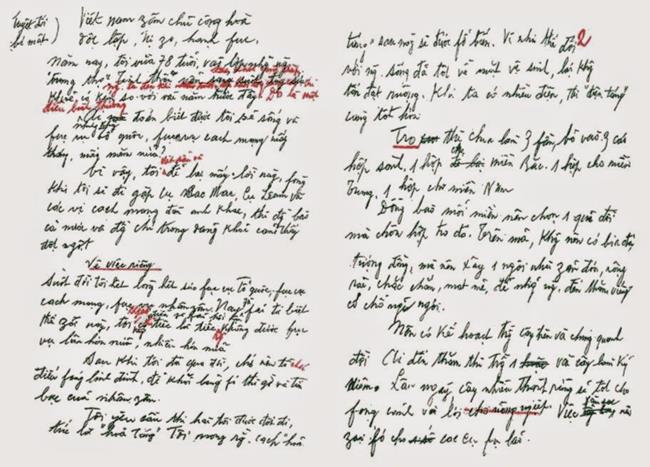 Tuyệt đối
bí mật) Việt nam zân chủ cộng hoà
độc lập, tự zo, hạnh fúc.
Năm nay, tôi vừa 78 tuổi, vào lớp những
trung thọ tinh thần
khoẻ so với vài năm trước đây. Đó là một
điều bình thường
Ai mà đoán biết được tôi sẽ sống và
fục vụ tổ quốc, fục vụ cách mạng mấy
tháng, mấy năm nữa?
Vì vậy, tôi để lại mấy lời này, fòng
khi tôi sẽ đi gặp cụ Các Mác, cụ Lênin và
các vị cách mạng đàn anh khác, thì đồng bào
cả nước và đồng chí trong đảng khỏi cảm thấy
đột ngột.
Về việc riêng
Suốt đời tôi hết lòng hết sức fục vụ tổ quốc, fục vụ
cách mạng, fục vụ nhân zân. Nay fải từ biệt
thế zới này, tôi chỉ tiếc là tiếc không được fục
vụ lâu hơn nữa, nhiều hơn nữa.
Sau khi tôi đã qua đời, chớ nên tổ chức
điếu fúng linh đình, để khỏi lãng fí thì zờ và tiền
bạc của nhân zân.
Tôi yêu cầu thi hài tôi được đốt đi,
tức là "hoả táng". Tôi mong rằng cách "hoả
2
táng" sau này sẽ được fổ biến. Vì như thế đối
với ng. sống đã tốt về mặt vệ sinh, lại không
tốn đất ruộng. Khi ta có nhiều điện, thì "điện táng"
càng tốt hơn.
Tro thì chia làm 3 fần, bỏ vào 3 cái
hộp sành, 1 hộp cho miền Bắc. 1 hộp cho miền
Trung, 1 hộp cho miền Nam
Đồng bào mỗi miền nên chọn 1 quả đồi
mà chôn hộp tro đó. Trên mả, không nên có bia đá
tượng đồng, mà nên xây 1 ngôi nhà zản đơn, rộng
rãi, chắc chắn, mát mẻ, để những ng. đến thăm viếng
có chỗ nghỉ ngơi.
Nên có kế hoạch trồng cây trên và chung quanh
đồi. Ai đến thăm thì trồng 1 cây làm kỷ
niệm. Lâu ngày cây nhiều thành rừng sẽ tốt cho
fong cảnh và lợi cho nông nghiệp. Việc săn sóc nên
zao fó cho các cụ fụ lão.